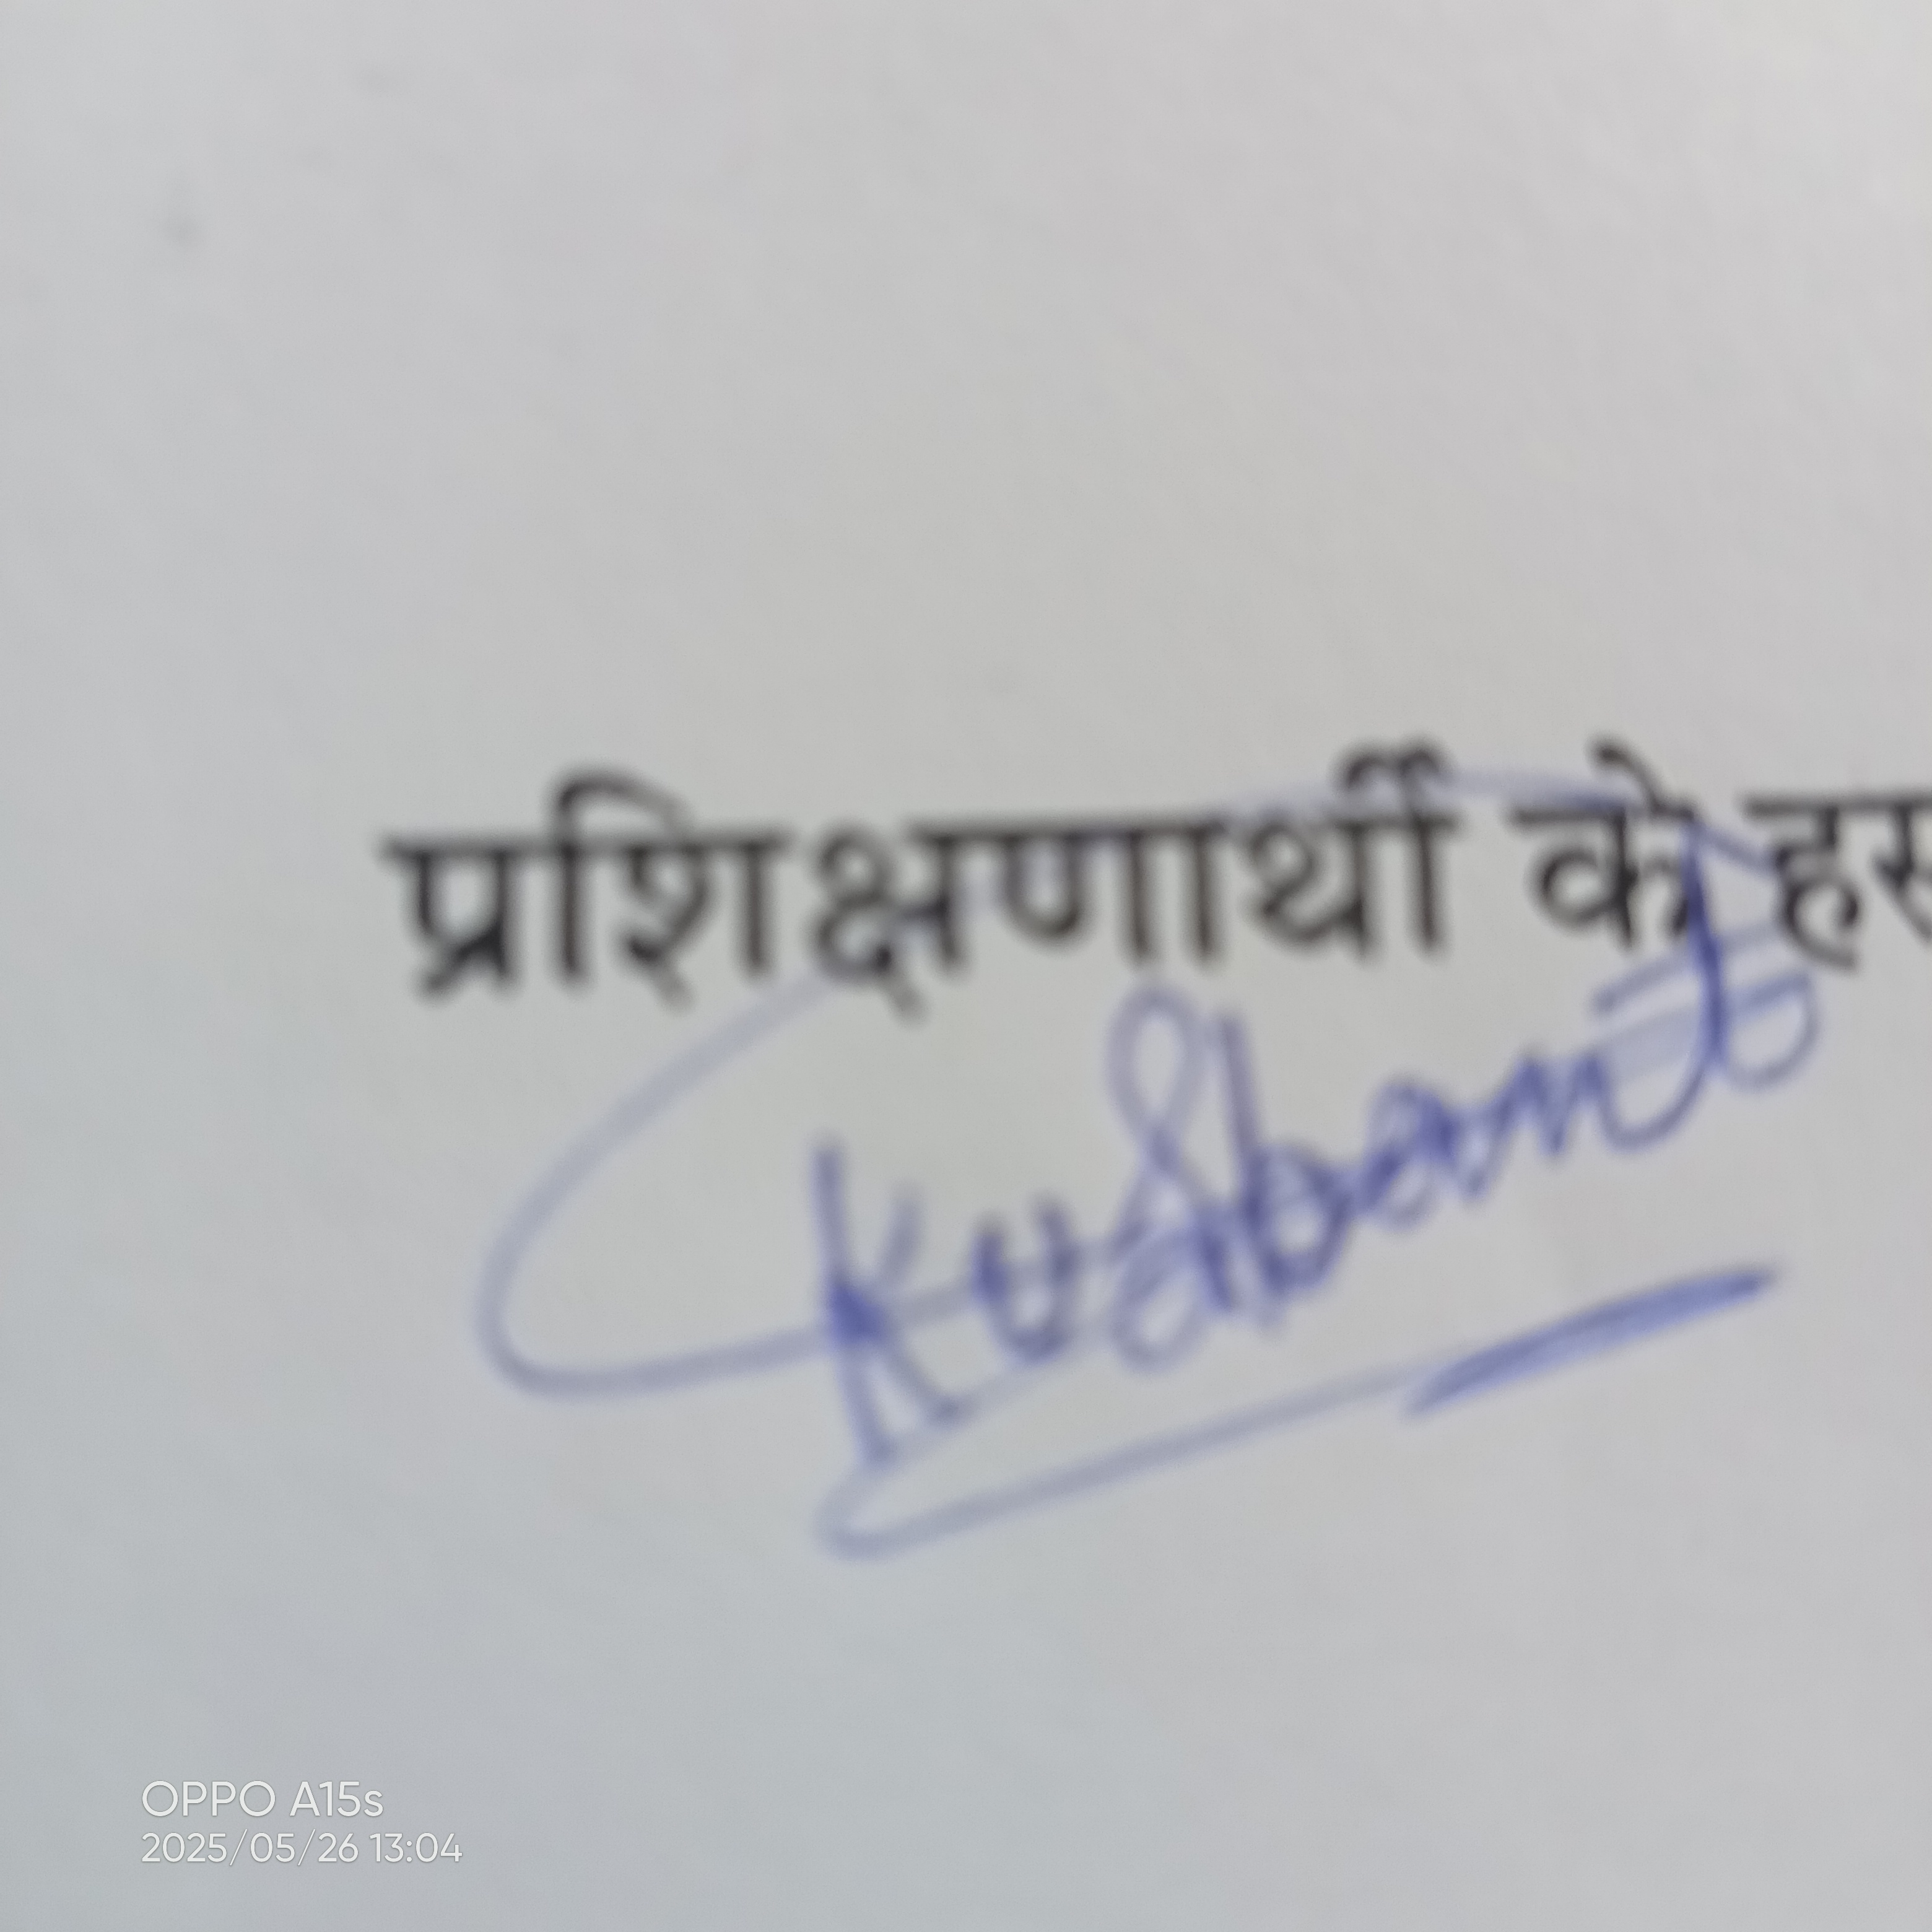 प्रशिक्षणार्थी के हस
OPPO A15s
2025/05/26 13:04